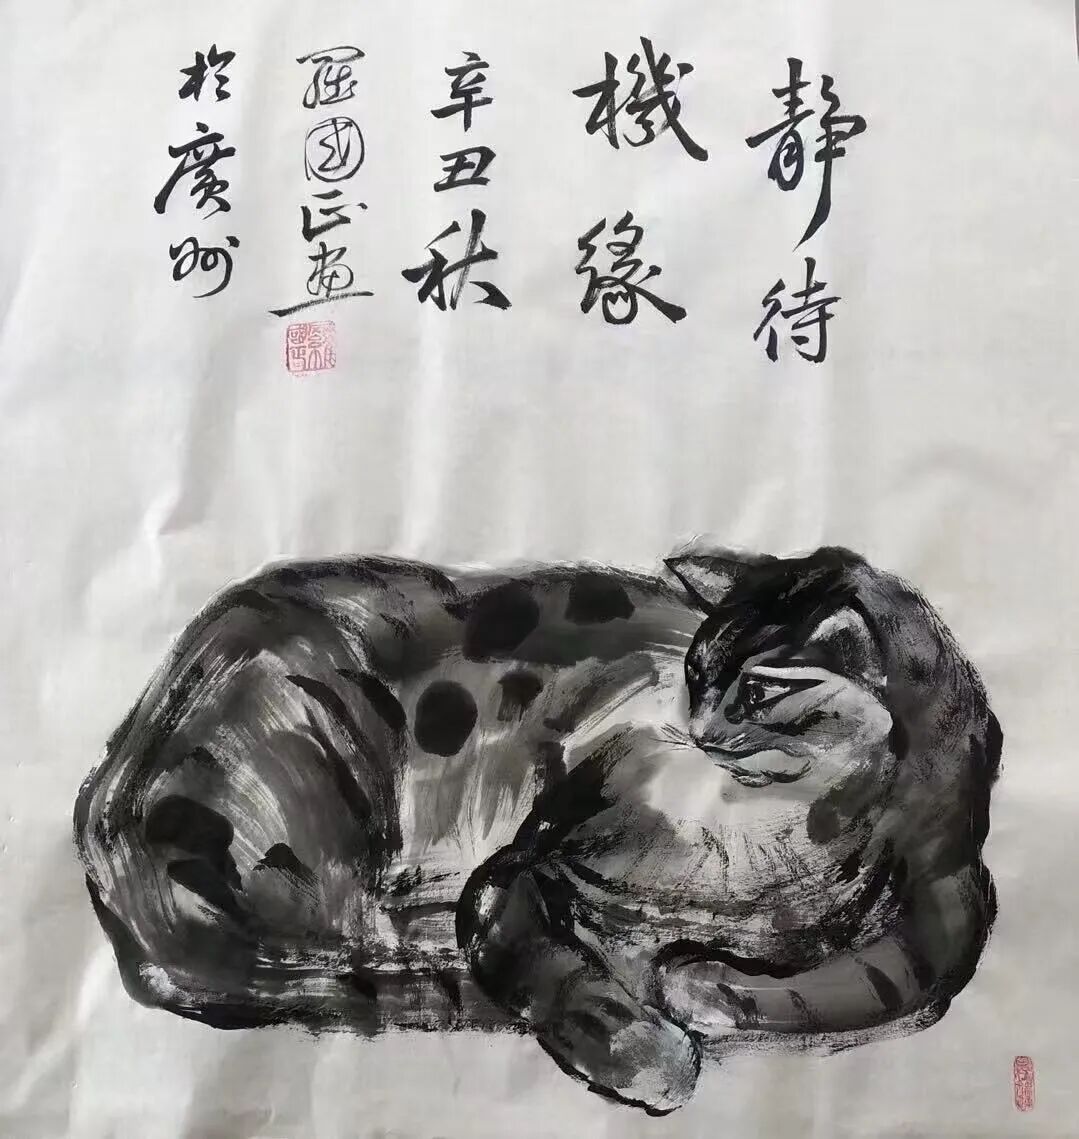 靜待
機緣
辛丑秋
羅國正畫
於廣州